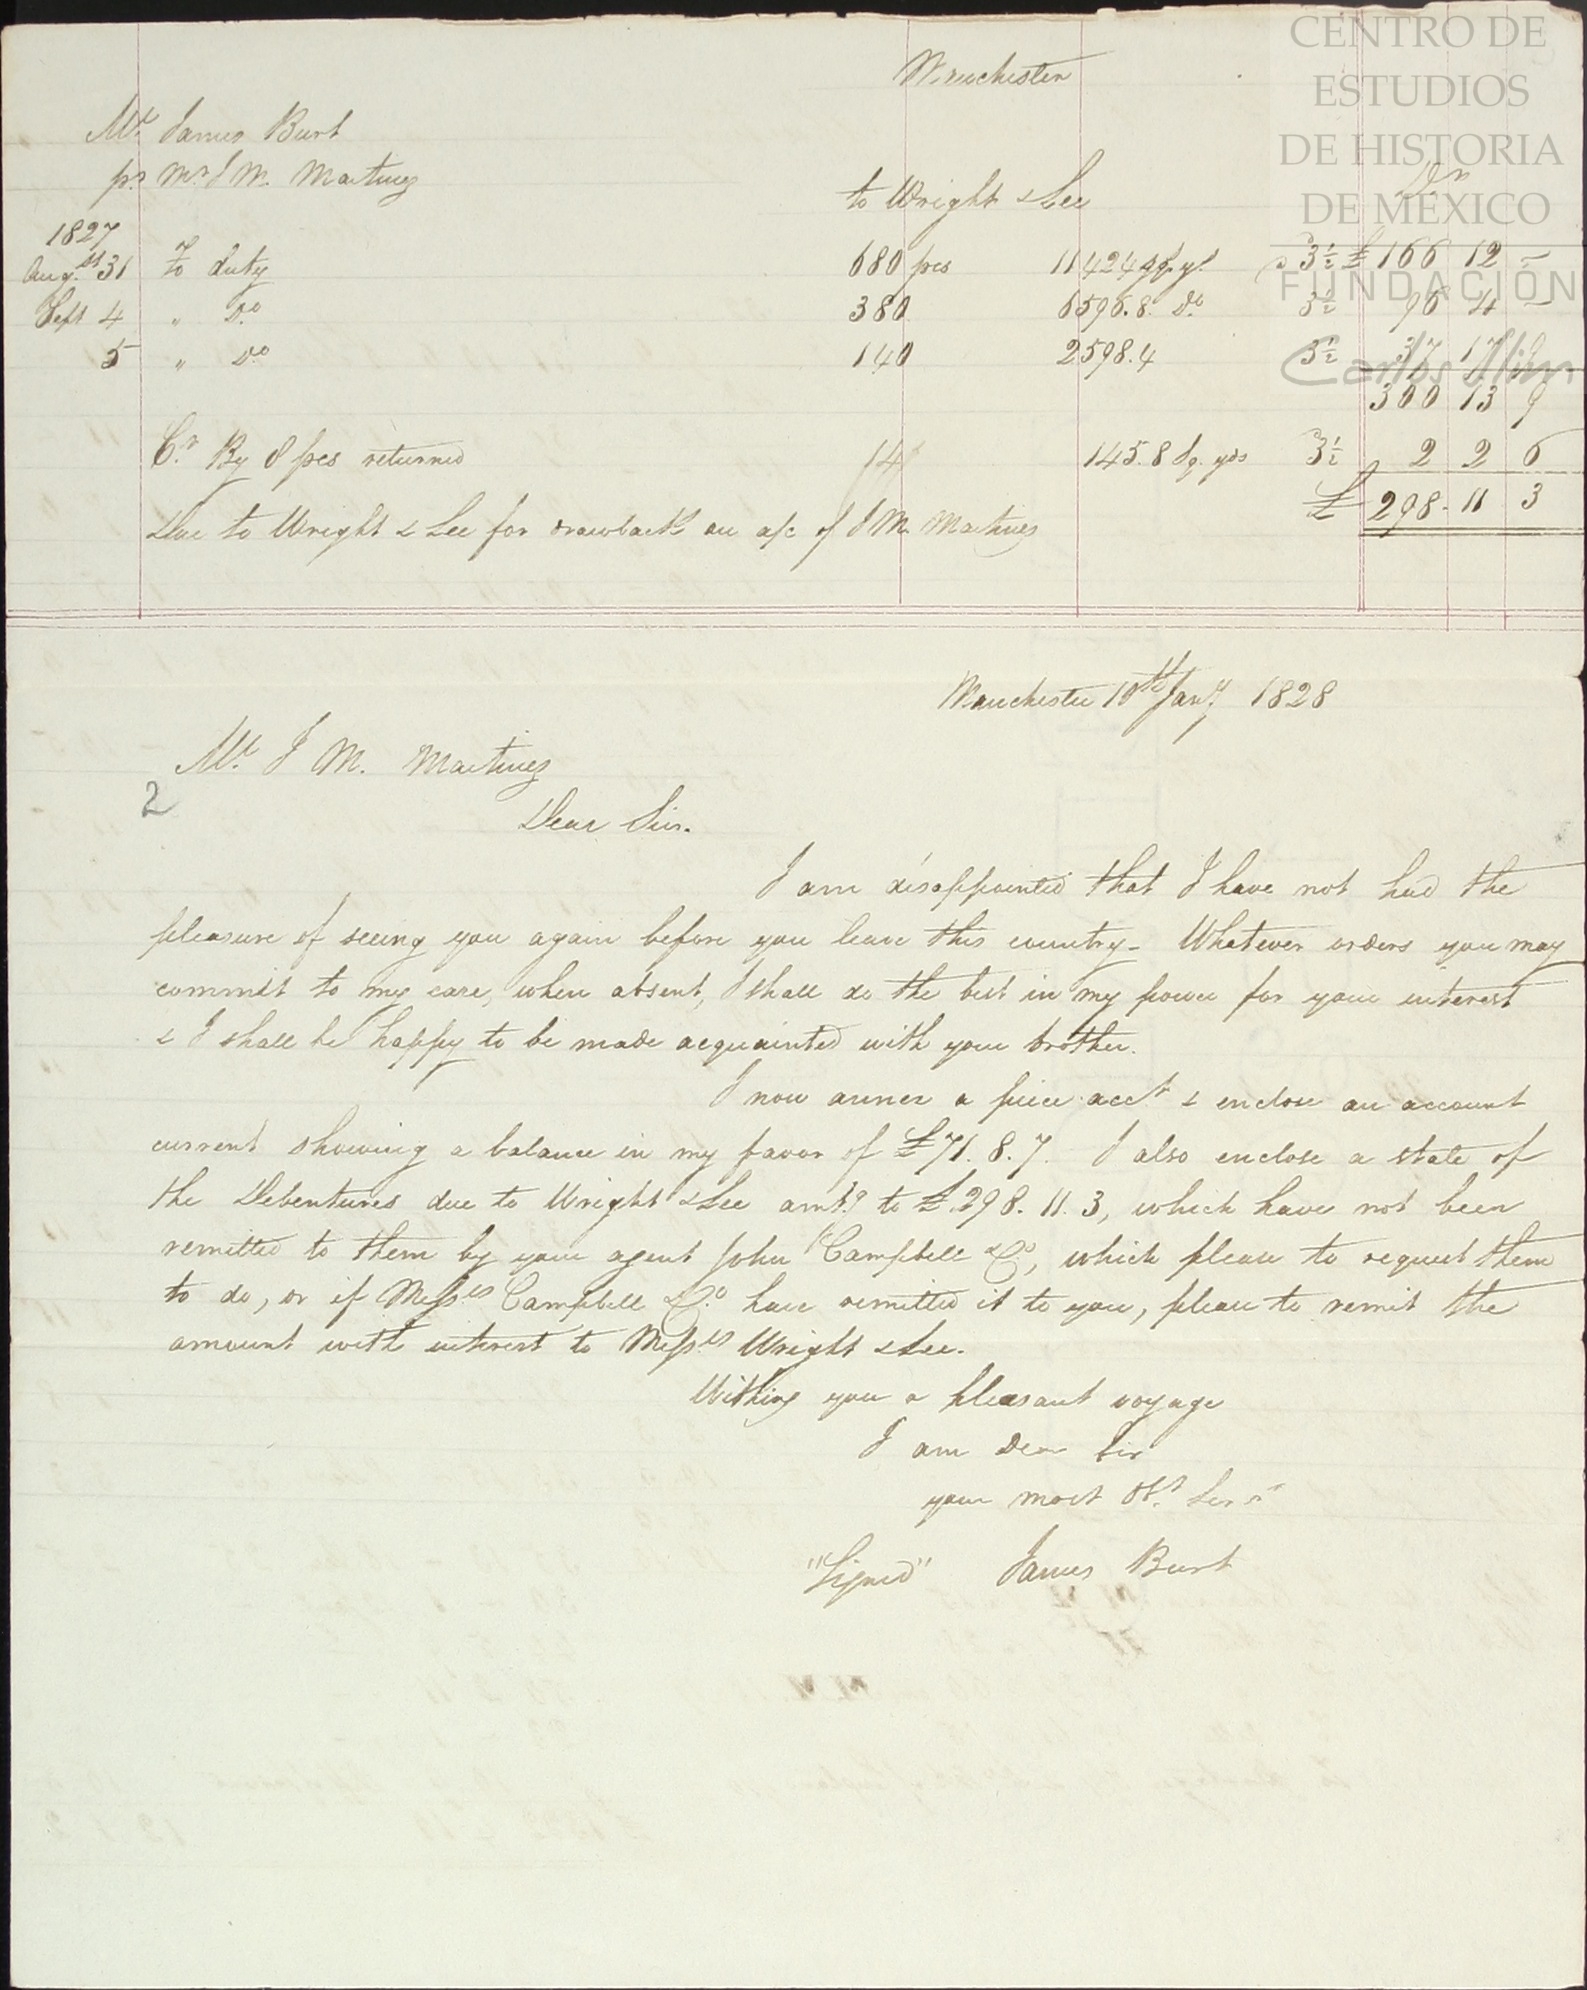 CENTRO DE
ESTUDIOS
DE HISTORIA
DE MÉXICO
FUNDACIÓN
Carlos Slim
Manchester
Mr. James Burt
pr. Mr. J M. Martinez
to Wright & Lee Dr.
1827
Aug. st 31 To duty 680 pces 11424 sq. yd 3½ £ 166 12 –
Sept 4 " Do 380 6596.8. Do 3½ 96 4 –
5 " Do 140 2598.4 3½ 37 17 9
300 13 9
Cr. By 8 pces returned 14 145.8 Sq. yds 3½ 2 2 6
£ 298. 11 3
Due to Wright & Lee for drawback on a/c of J M. Martinez
Manchester 10th Jany. 1828
Mr. J M. Martinez
2
Dear Sir.
I am disappointed that I have not had the
pleasure of seeing you again before you leave this country – Whatever orders you may
commit to my care, when absent, I shall do the best in my power for your interest
& I shall be happy to be made acquainted with your brother.
I now annex a piece acct & enclose an account
current showing a balance in my favor of £71. 8. 7. I also enclose a state of
the Debentures due to Wright & Lee amtg. to £298. 11. 3, which have not been
remitted to them by your agent John Campbell & Co., which please to request them
to do, or if Messrs Campbell & Co. have remitted it to you, please to remit the
amount with interest to Messrs Wright & Lee.
Wishing you a pleasant voyage
I am Dear Sir
your most Obt. Servt
"Signed" James Burt